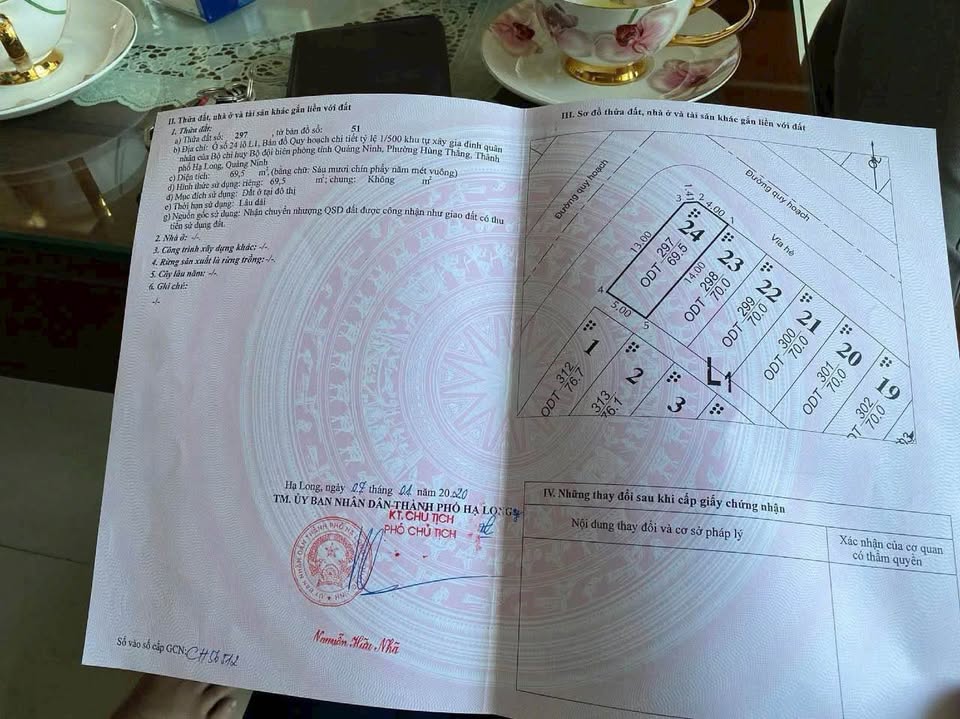 II. Thửa đất, nhà ở và tài sản khác gắn liền với đất
1. Thửa đất:
a) Thửa đất số: 297 , tờ bản đồ số: 51
b) Địa chỉ: Ô số 24 lô L1, Bản đồ Quy hoạch chi tiết tỷ lệ 1/500 khu tự xây gia đình quân
nhân của Bộ chỉ huy Bộ đội biên phòng tỉnh Quảng Ninh, Phường Hùng Thắng, Thành
phố Hạ Long, Quảng Ninh
c) Diện tích: 69,5 m², (bằng chữ: Sáu mươi chín phẩy năm mét vuông)
d) Hình thức sử dụng: riêng: 69,5 m²; chung: Không m²
đ) Mục đích sử dụng: Đất ở tại đô thị
e) Thời hạn sử dụng: Lâu dài
g) Nguồn gốc sử dụng: Nhận chuyển nhượng QSD đất được công nhận như giao đất có thu
tiền sử dụng đất.
2. Nhà ở: -/-.
3. Công trình xây dựng khác: -/-.
4. Rừng sản xuất là rừng trồng: -/-.
5. Cây lâu năm: -/-.
6. Ghi chú:
-/-
Hạ Long, ngày 07 tháng 01 năm 2020
TM. ỦY BAN NHÂN DÂN THÀNH PHỐ HẠ LONG
KT. CHỦ TỊCH
PHÓ CHỦ TỊCH
Nguyễn Hữu Nhã
Số vào sổ cấp GCN: CH
III. Sơ đồ thửa đất, nhà ở và tài sản khác gắn liền với đất
Đường quy hoạch
Đường quy hoạch
Vỉa hè
3
2
4.00
1
13.00
14.00
4
5.00
5
24
ODT 297
69.5
23
ODT 298
70.0
22
ODT 299
70.0
21
ODT 300
70.0
20
ODT 301
70.0
19
302
70.0
L1
1
ODT 312
76.7
2
313
76.1
3
IV. Những thay đổi sau khi cấp giấy chứng nhận
Nội dung thay đổi và cơ sở pháp lý
Xác nhận của cơ quan
có thẩm quyền